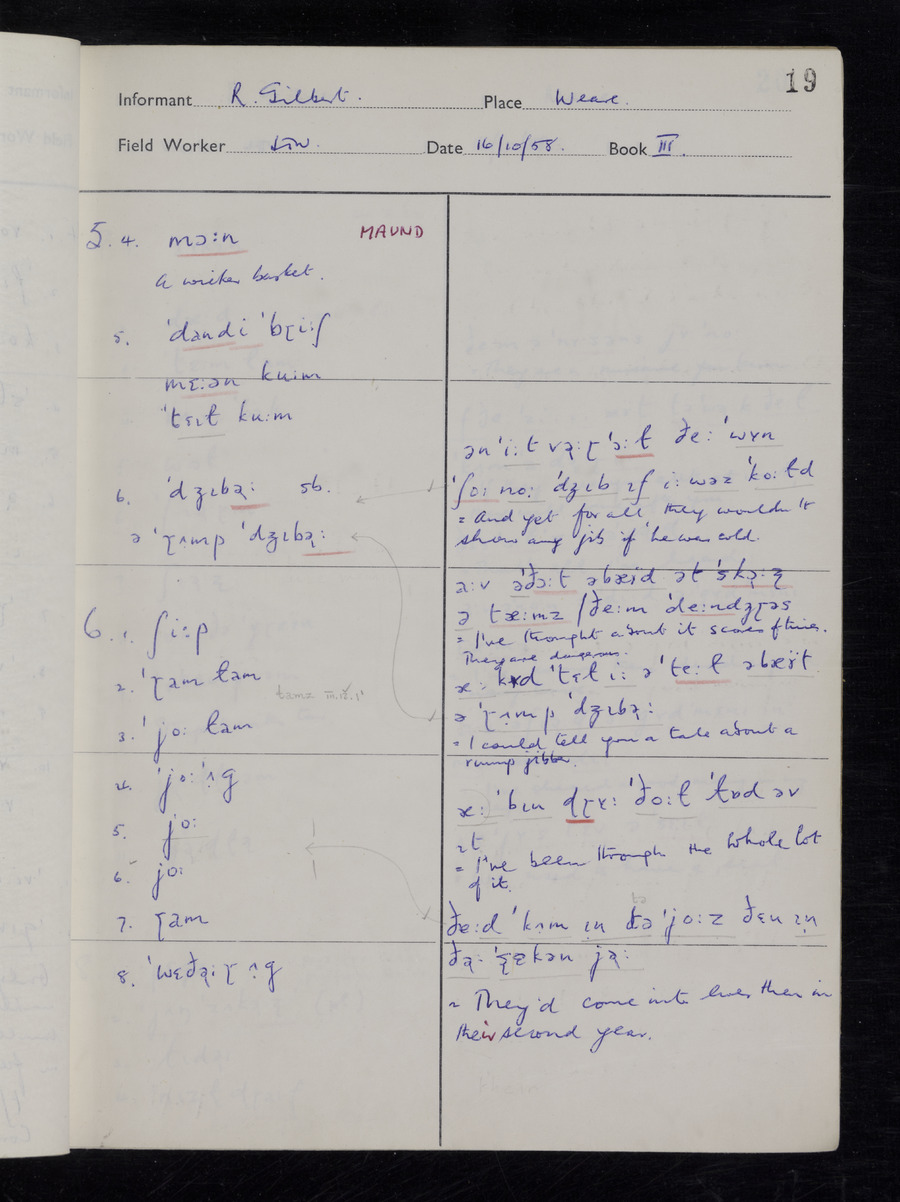 19
Informant R. Gilbert. Place Weare.
Field Worker Date 16/10/58. Book III.
5. 4. mɔːn MAUND
a wicker basket.
5. ˈdandi ˈbɽiːʃ
mɛːən kuːm
ˈtɛɪt kuːm
6. ˈdʒɪbəː sb.
ə ˈɽʌmp ˈdʒɪbəː
6. 1. ʃiːp
2. ˈɽam tam
3. ˈjoː tam
4. ˈjoːʌg
5. joː
6. joː
7. ɽam
8. ˈwɛðəːɽ ʌg
ən ˈiːt vəːɽ ˈɔːt ðeː ˈwʏn
ˈʃoː noː ˈdʒɪb ɪf iː wəz ˈkoːtd
= And yet for all they wouldn't
show any jib if he was cold.
aːv əˈðɔːt əbæɪd ət ˈskəːz
ə tæːmz / ðeːm ˈdeːndʒɽəs
= I've thought about it scores of times.
They are dangerous.
ˈtɛt iː ə ˈteːt
ə ˈɽʌmp ˈdʒɪbəː
= I could tell you a tale about a
rump jibber.
æː ˈbɪn dɽʏː ˈðoːt ˈtɒd əv
ɪt
= I've been through the whole lot
of it.
ðeːd ˈkʌm ɪn tə ˈjoːz ðɛn ɪn
ðəː ˈzɛkən jəː
= They'd come into ewes then in
their second year.